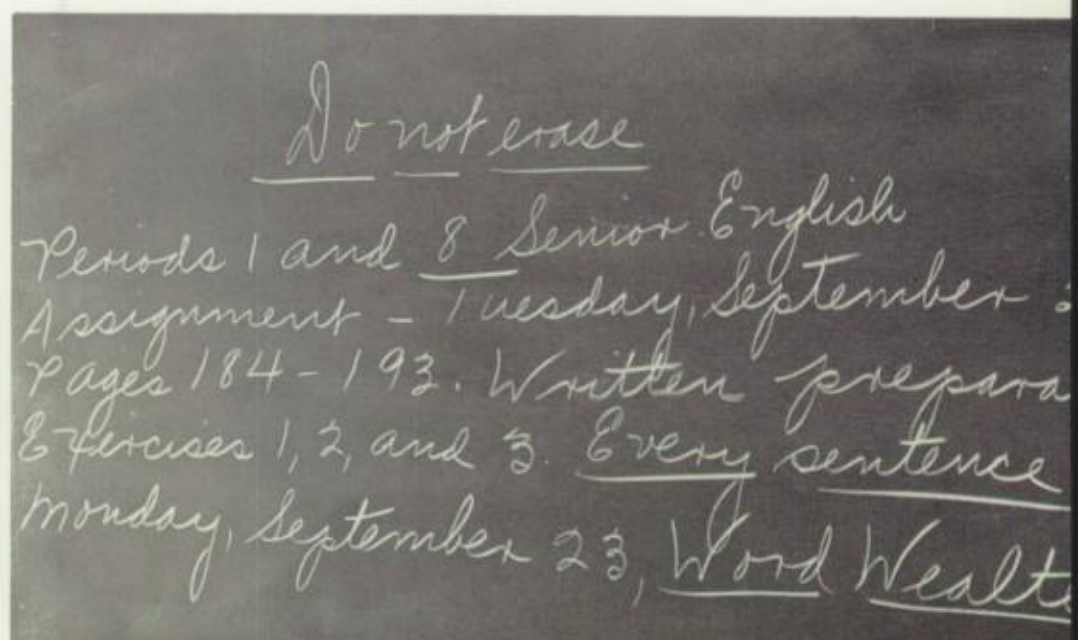 Do not erase
Periods 1 and 8 Senior English
Assignment – Tuesday, September
Pages 184 – 193. Written prepara
Exercises 1, 2, and 3. Every sentence
Monday, September 23, Word Wealt